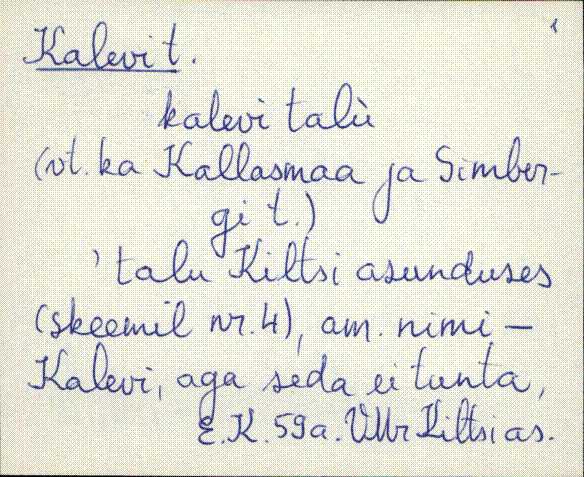 1
Kalevi t.
kalevi talù
(vt. ka Kallasmaa ja Simber-
gi t.)
' talu Kiltsi asunduses
(skeemil nr. 4), am. nimi —
Kalevi, aga seda ei tunta,
E. K. 59 a. VMr Kiltsi as.